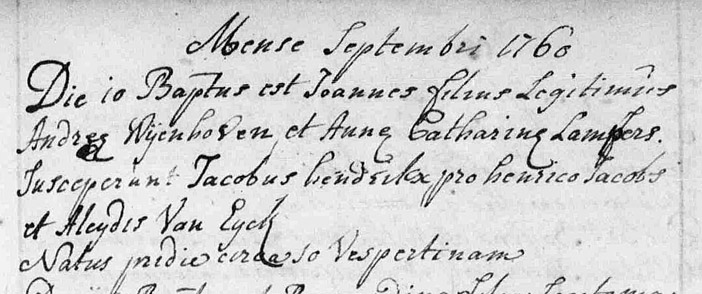 Mense Septembri 1760
Die 10 Baptus est Joannes filius Legitimus
Andreę Wijenhoven et Annę Catharinę Lampers.
Susceperunt Jacobus hendrikx pro henrico Jacobs
et Aleydis Van Eyck
Natus pridie circa 10 Vespertinam